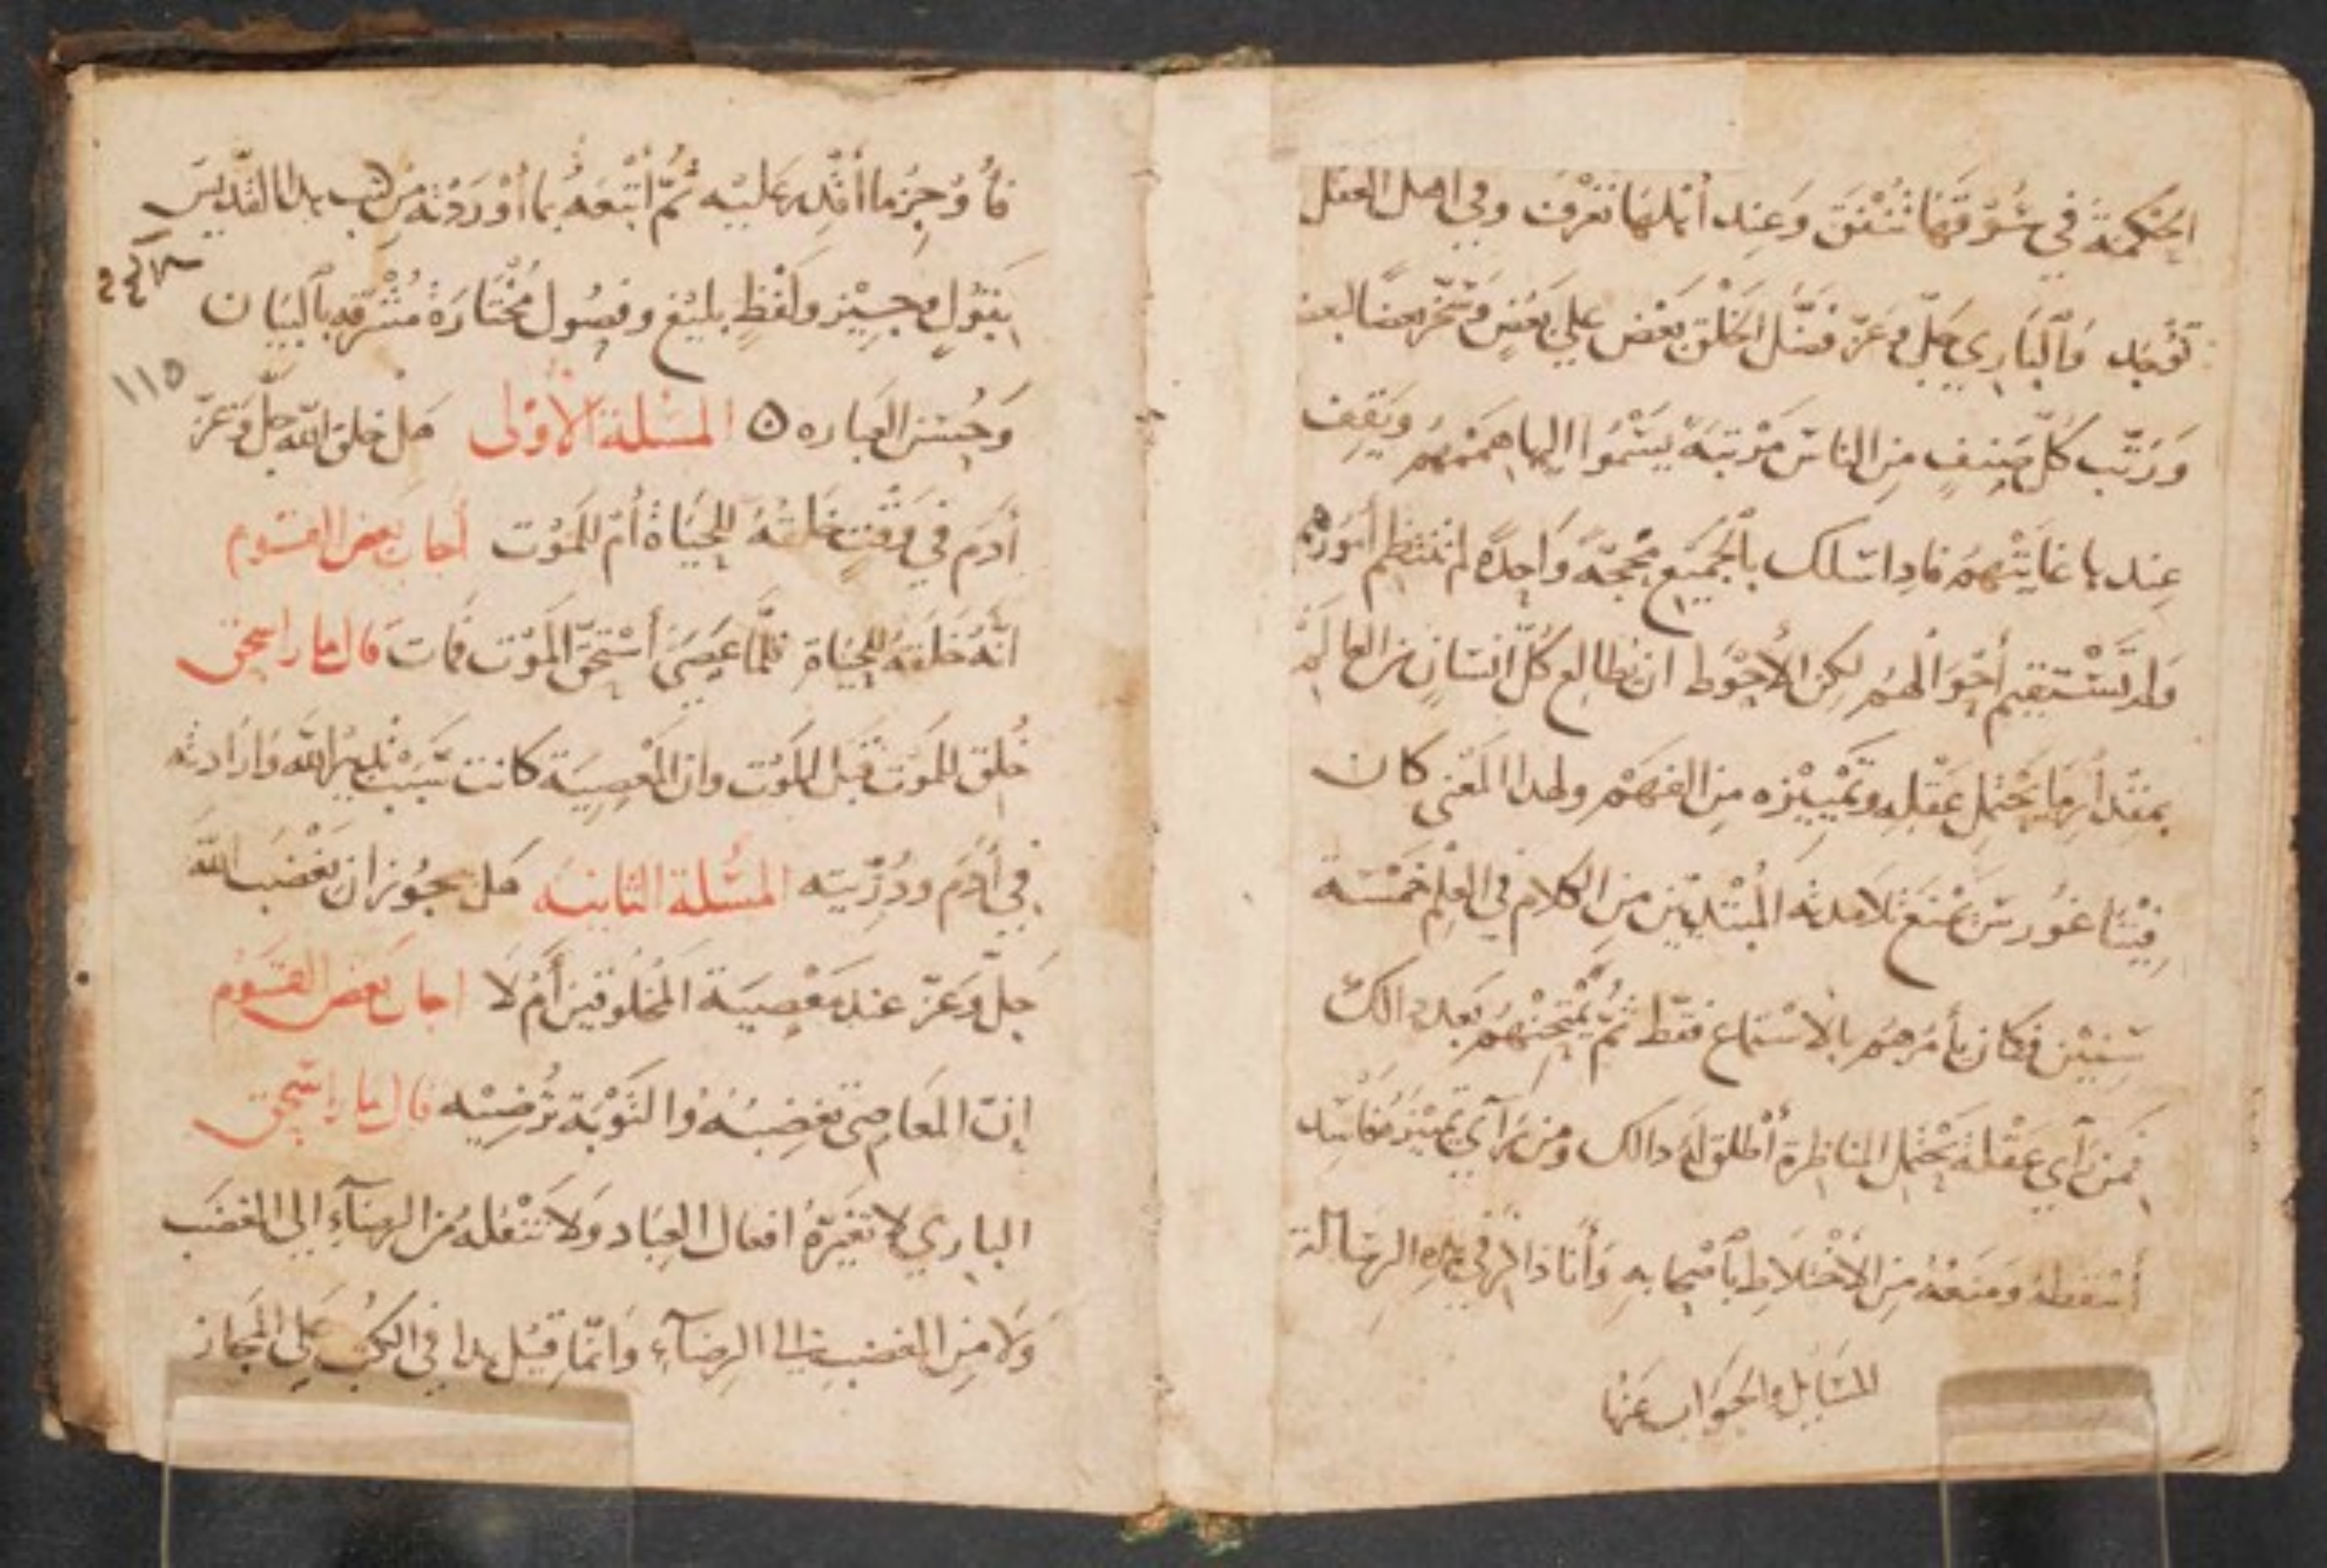 الحكمة في سوقها تنفق وعند أهلها تعرف وفي اهل العقل
توجد والباري جل وعز فضل الخلق بعض علي بعض وسخر بعضا لبعض
ورتب كل صنف من الناس مرتبة يسموا اليها هممهم ويقف
عندها غايتهم فاذا سلك بالجميع محجة واحدة لم تنتظم أمورهم
ولم تستقيم أحوالهم لكن الأحوط ان يطالع كل انسان من العالم
بمقدار ما يحتمل عقله وتمييزه من الفهم ولهدا المعنى كان
فيثاغورس يمنع تلامدته المبتديين من الكلام في العلم خمسة
سنين فكان يأمرهم بالاستماع فقط ثم يمتحنهم بعد دالك
فمن رآي عقله يحتمل المناظرة أطلق له دالك ومن رآي تمييزه فاسد
أسقطه ومنعه من الأختلاط بأصحابه وأنا داكر في هده الرسالة
المسايل والجواب عنها
فأوجز ما أقدر عليه ثم أتبعه بما أوردته من كتب هدا القديس
بقول وجيز ولفظ بليغ وفصول مختارة مشرقه بالبيان
١١٥
وحسن العباره ٥ المسلة الأولى هل خلق الله جل وعز
أدم في وقت خلقه للحياة أم للموت أجاب بعض القسوم
انه خلقه للحياة فلما عصى أستحق الموت فمات قال مار اسحق
خلق للموت قبل الموت وان المعصية كانت بسبب تدبير الله وارادته
في أدم ودريته المسلة الثانية هل يجوز ان يغضب الله
جل وعز عند معصية المخلوقين أم لا اجاب بعض القسوم
إن المعاصى تغضبه والتوبة ترضيه قال مار اسحق
الباري لا تغيره افعال العباد ولا تنقله من الرضآء الي الغضب
ولا من الغضب الي الرضآء وانما قيل هدا في الكتب على المجاز